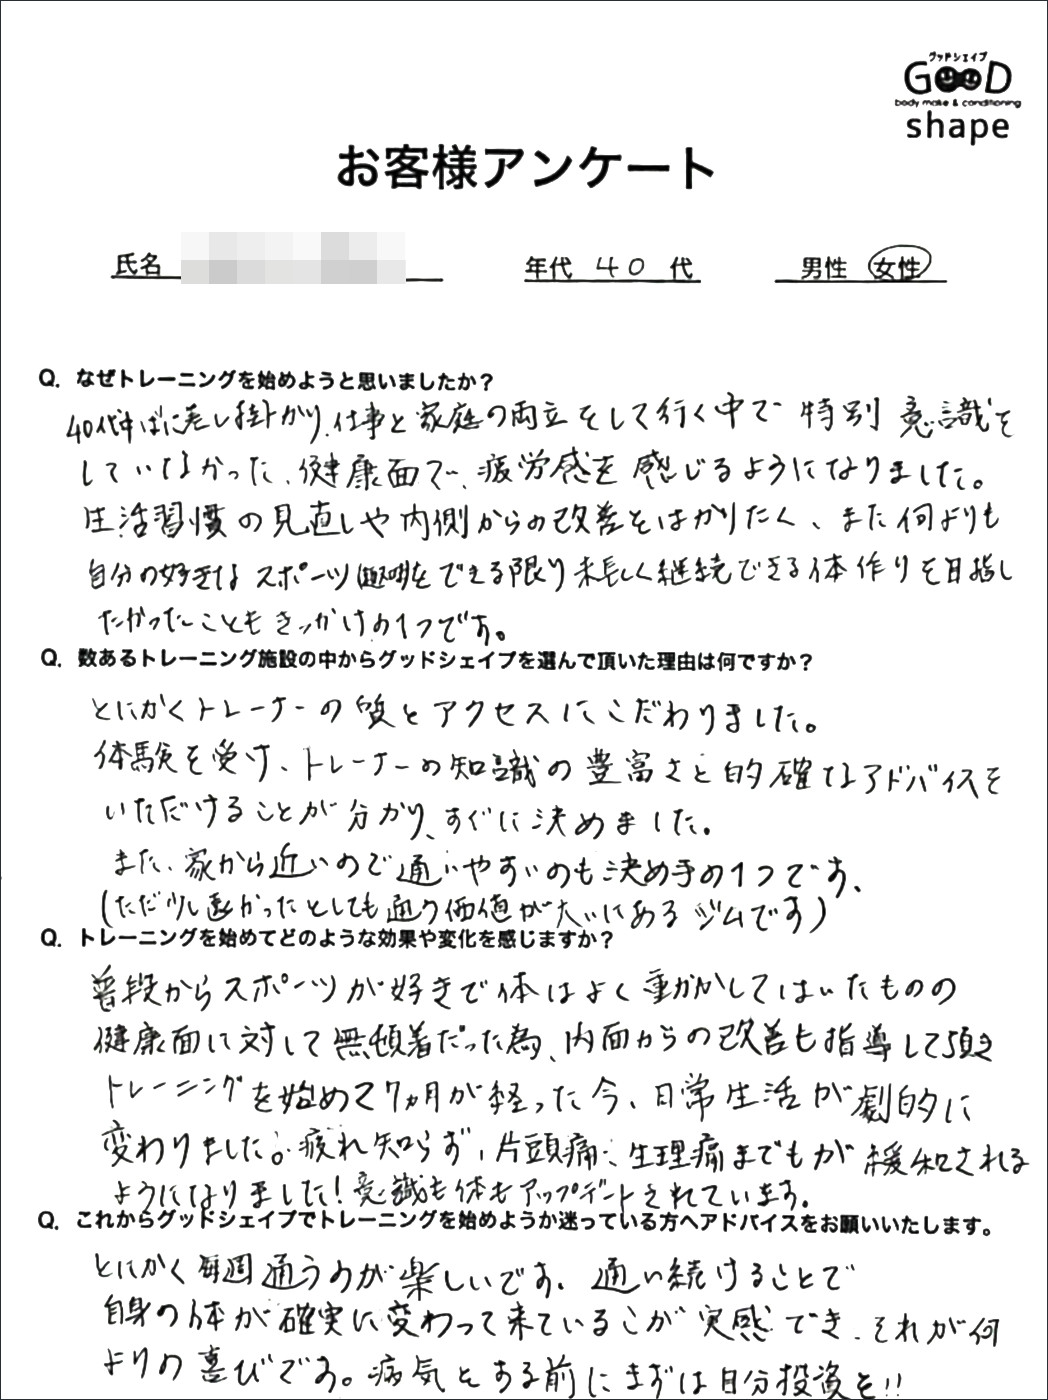 グッドシェイプ
GOOD
body make & conditioning
shape
お客様アンケート
氏名
年代 40 代
男性 女性
Q. なぜトレーニングを始めようと思いましたか?
40代中ばに差し掛かり、仕事と家庭の両立をして行く中で 特別 意識を
していなかった、健康面で、疲労感を 感じるようになりました。
生活習慣の見直しや内側からの改善をはかりたく、また何よりも
自分の好きな スポーツ をできる限り末長しく継続できる体作りを目指し
たかったこともきっかけの1つです。
Q. 数あるトレーニング施設の中からグッドシェイプを選んで頂いた理由は何ですか?
とにかくトレーナーの質とアクセスにこだわりました。
体験を受け、トレーナーの知識の豊富さと的確なアドバイスを
いただけることが分かり、すぐに決めました。
また、家から近いので通いやすいのも決め手の1つです、
(ただ少し遠かったとしても通う価値が大いにあるジムです)
Q. トレーニングを始めてどのような効果や変化を感じますか?
普段からスポーツが好きで体はよく動かしてはいたものの
健康面に対して無頓着だった為、内面からの改善も指導して頂き
トレーニングを始めて7ヵ月が経った今、日常生活が劇的に
変わりました。疲れ知らず、片頭痛、生理痛までもが緩和される
ようになりました!意識も体もアップデートされています。
Q. これからグッドシェイプでトレーニングを始めようか迷っている方へアドバイスをお願いいたします。
とにかく毎週通うのが楽しいです。通い続けることで
自身の体が確実に変わって来ているこが実感でき、それが何
よりの喜びです。病気をする前にまずは自分投資を!!